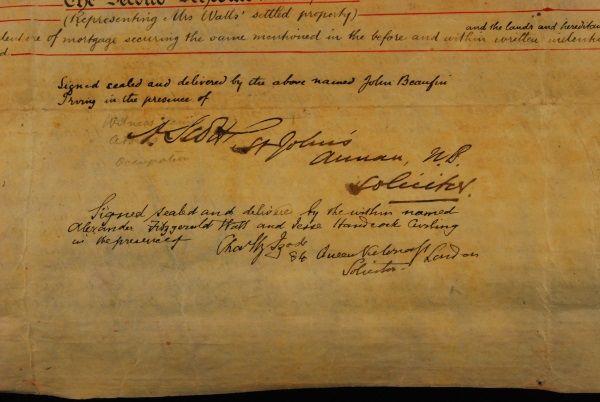 The Second
(Representing Mrs Watts' settled property)
and the lands and
of mortgage securing the same mentioned in the before and within written
Signed sealed and delivered by the above named John Beaufin
Irving in the presence of
Witness
Address
Occupation
Scott St John's
Annan, N.B.
Solicitor
Signed sealed and delivered by the within named
Alexander Fitzgerald Watt and Jesse Handcock
in the presence of
Queen Victoria St London
Solicitor